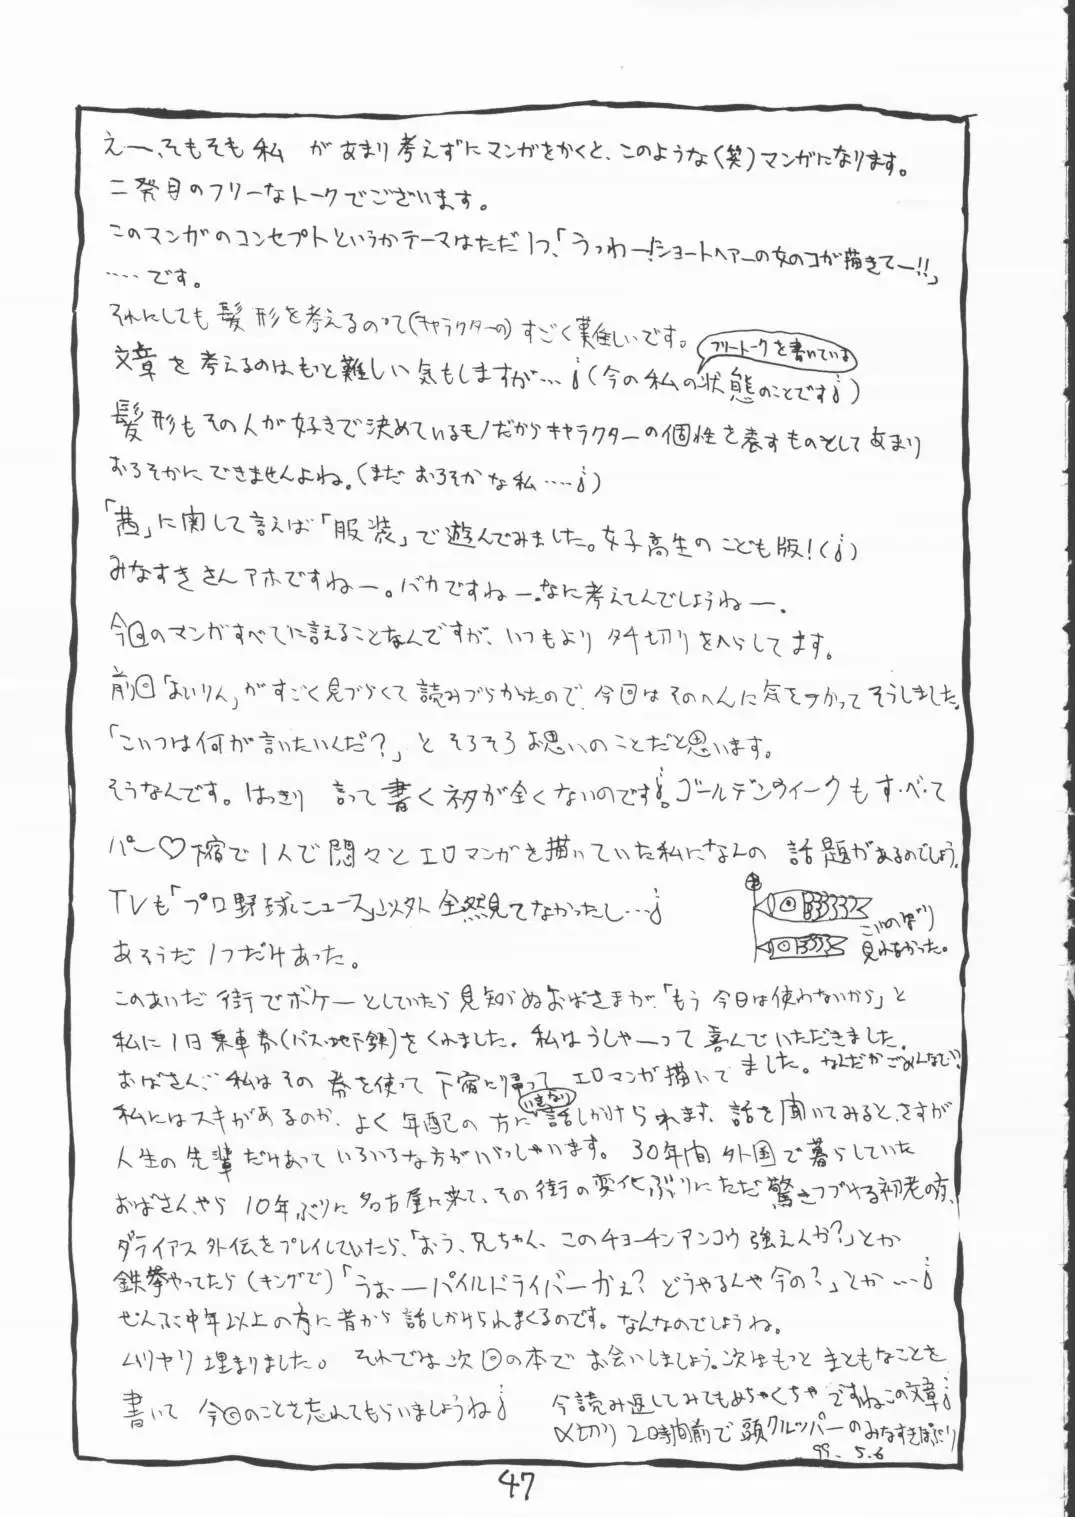 えー、そもそも私 があまり考えずにマンガをかくと、このような(笑)マンガになります。
二発目のフリーなトークでございます。
このマンガのコンセプトというかテーマはただ1つ、「うっわー!ショートヘアーの女のコが描きてー!!」
‥‥です。
それにしても髪形を考えるのって(キャラクターの)すごく難しいです。
フリートークを書いている
文章を考えるのはもっと難しい気もしますが…(今の私の状態のことです)
髪形もその人が好きで決めているモノだからキャラクターの個性を表すものとしてあまり
おろそかにできませんよね。(まだおろそかな私‥‥)
「茜」に関して言えば「服装」で遊んでみました。女子高生のこども版!()
みなすきさんアホですねー。バカですねー。なに考えてんでしょうねー。
今回のマンガすべてに言えることなんですが、いつもよりタチ切りをへらしてます。
前回「よいりん」がすごく見づらくて読みづらかったので、今回はそのへんに気をつかってそうしました。
「こいつは何が言いたいんだ?」とそろそろお思いのことだと思います。
そうなんです。はっきり言って書くネタが全くないのです。ゴールデンウィークもす・べ・て
パー♡下宿で1人で悶々とエロマンガを描いていた私になんの話題があるのでしょう。
TVも「プロ野球ニュース」以外全然見てなかったし…
こいのぼり
見れなかった。
あそうだ1つだけあった。
このあいだ街でボケーとしていたら見知らぬおばさまが、「もう今日は使わないから」と
私に1日乗車券(バス・地下鉄)をくれました。私はうしゃーって喜んでいただきました。
おばさん、私はその券を使って下宿に帰ってエロマンガ描いてました。なんだかごめんなさい
いきなり
私にはスキがあるのか、よく年配の方に話しかけられます、話を聞いてみると、さすが
人生の先輩だけあっていろいろな方がいらっしゃいます。30年間外国で暮らしていた
おばさんやら10年ぶりに名古屋に来て、その街の変化ぶりにただ驚きつづける初老の方、
ダライアス外伝をプレイしていたら、「おう、兄ちゃん、このチョーチンアンコウ強えんか?」とか
鉄拳やってたら(キングで)「うおーパイルドライバーかぇ?どうやるんや今の?」とか…
ぜんぶ中年以上の方に昔から話しかけられまくるのです。なんなのでしょうね。
ムリヤリ埋まりました。それでは次回の本でお会いしましょう。次はもっとまともなことを
書いて今回のことを忘れてもらいましょうね
今読み返してみてもめちゃくちゃですねこの文章
〆切り20時間前で頭クルッパーのみなすきぽぷり
99. 5.6
47